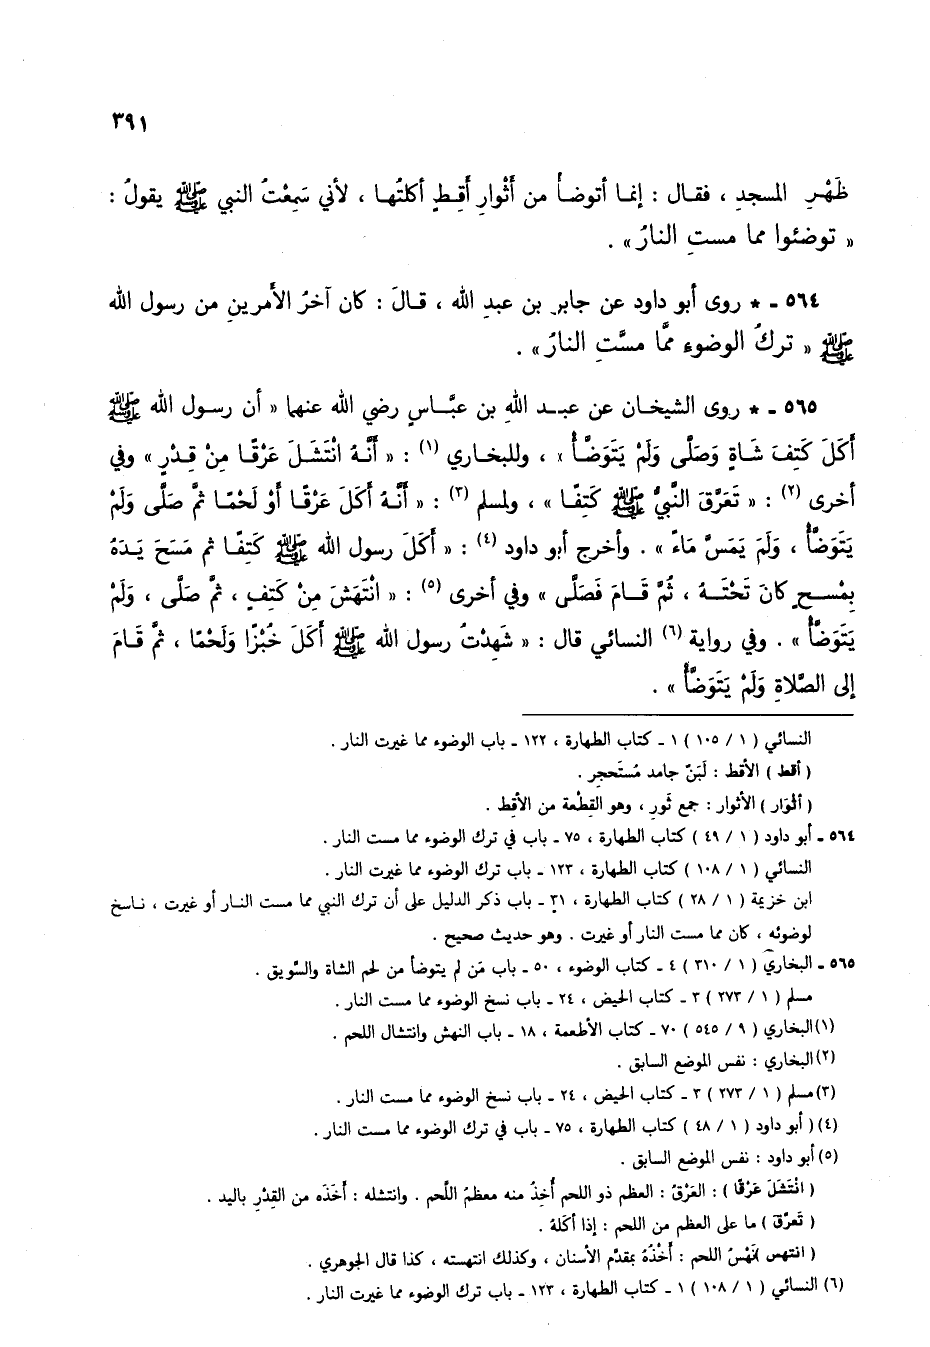 ٣٩١
ظَهْرِ المسجدِ ، فقال : إنما أتوضأُ من أَثْوارِ أَقِطٍ أكلتُها ، لأني سَمِعْتُ النبي ﷺ يقولُ :
« توضئوا مما مستِ النارُ » .
٥٦٤ ـ * روى أبو داود عن جابرِ بن عبدِ الله ، قالَ : كان آخرُ الأمرينِ من رسول الله
ﷺ « تركُ الوضوءِ ممَّا مسَّتِ النارُ » .
٥٦٥ ـ * روى الشيخان عن عبدِ اللهِ بن عبَّاسٍ رضي الله عنهما « أن رسول الله ﷺ
أَكَلَ كَتِفَ شَاةٍ وَصَلَّى وَلَمْ يَتَوَضَّأْ » ، وللبخاري (١) : « أَنَّهُ انْتَشَلَ عَرْقًا مِنْ قِدْرٍ » وفي
أخرى (٢) : « تَعَرَّقَ النَّبِيُّ ﷺ كَتِفًا » ، ولمسلم (٣) : « أَنَّهُ أَكَلَ عَرْقًا أَوْ لَحْمًا ثُمَّ صَلَّى وَلَمْ
يَتَوَضَّأْ ، وَلَمْ يَمَسَّ مَاءً » . وأخرج أبو داود (٤) : « أَكَلَ رسول الله ﷺ كَتِفًا ثم مَسَحَ يَدَهُ
بِمْسحٍ كانَ تَحْتَهُ ، ثُمَّ قَامَ فَصَلَّى » وفي أخرى (٥) : « انْتَهَشَ مِنْ كَتِفٍ ، ثمَّ صَلَّى ، وَلَمْ
يَتَوَضَّأْ » . وفي رواية (٦) النسائي قال : « شَهِدْتُ رسول الله ﷺ أَكَلَ خُبْزًا وَلَحْمًا ، ثمَّ قَامَ
إلى الصَّلاةِ وَلَمْ يَتَوَضَّأْ » .
النسائي ( ١ / ١٠٥ ) ١ ـ كتاب الطهارة ، ١٢٢ ـ باب الوضوء مما غيرت النار .
( أقط ) الأقط : لَبَنٌ جامد مُستَحجِر .
( أثْوَار ) الأثوار : جمع ثَورٍ ، وهو القِطْعة من الأقط .
٥٦٤ ـ أبو داود ( ١ / ٤٩ ) كتاب الطهارة ، ٧٥ ـ باب في ترك الوضوء مما مست النار .
النسائي ( ١ / ١٠٨ ) كتاب الطهارة ، ١٢٣ ـ باب ترك الوضوء مما غيرت النار .
ابن خزيمة ( ١ / ٢٨ ) كتاب الطهارة ، ٣١ ـ باب ذكر الدليل على أن ترك النبي مما مست النار أو غيرت ، ناسخ
لوضوئه ، كان مما مست النار أو غيرت . وهو حديث صحيح .
٥٦٥ ـ البخاري ( ١ / ٣١٠ ) ٤ ـ كتاب الوضوء ، ٥٠ ـ باب مَن لم يتوضأ من لحم الشاة والسَّويق .
مسلم ( ١ / ٢٧٣ ) ٣ ـ كتاب الحيض ، ٢٤ ـ باب نسخ الوضوء مما مست النار .
(١) البخاري ( ٩ / ٥٤٥ ) ٧٠ ـ كتاب الأطعمة ، ١٨ ـ باب النهش وانتشال اللحم .
(٢) البخاري : نفس الموضع السابق .
(٣) مسلم ( ١ / ٢٧٣ ) ٣ ـ كتاب الحيض ، ٢٤ ـ باب نسخ الوضوء مما مست النار .
(٤) ( أبو داود ( ١ / ٤٨ ) كتاب الطهارة ، ٧٥ ـ باب في ترك الوضوء مما مست النار .
(٥) أبو داود : نفس الموضع السابق .
( انْتَشَلَ عَرْقًا ) : العَرْقُ : العظم ذو اللحم أُخِذُ منه معظمُ اللَّحم . وانتشله : أخَذَه من القِدْرِ باليد .
( تَعرَّقَ ) ما على العظم من اللحم : إذا أكلَهُ .
( انتهس ) نَهْسُ اللحم : أَخْذُهُ بمقدَّم الأسنان ، وكذلك انتهسته ، كذا قال الجوهري .
(٦) النسائي ( ١ / ١٠٨ ) ١ ـ كتاب الطهارة ، ١٢٣ ـ باب ترك الوضوء مما غيرت النار .